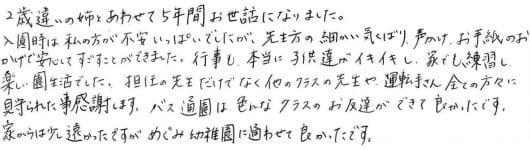 2歳違いの姉とあわせて5年間お世話になりました。
入園時は私の方が不安いっぱいでしたが、先生方の細かい気くばり、声かけ、お手紙のお
かげで安心してすごすことができました。行事も本当に子供達がイキイキし、家でも練習し、
楽しい園生活でした。担任の先生だけでなく他のクラスの先生や運転手さん全ての方々に
見守られた事感謝します。バス通園は色んなクラスのお友達ができて良かったです。
家からは少し遠かったですがめぐみ幼稚園に通わせて良かったです。